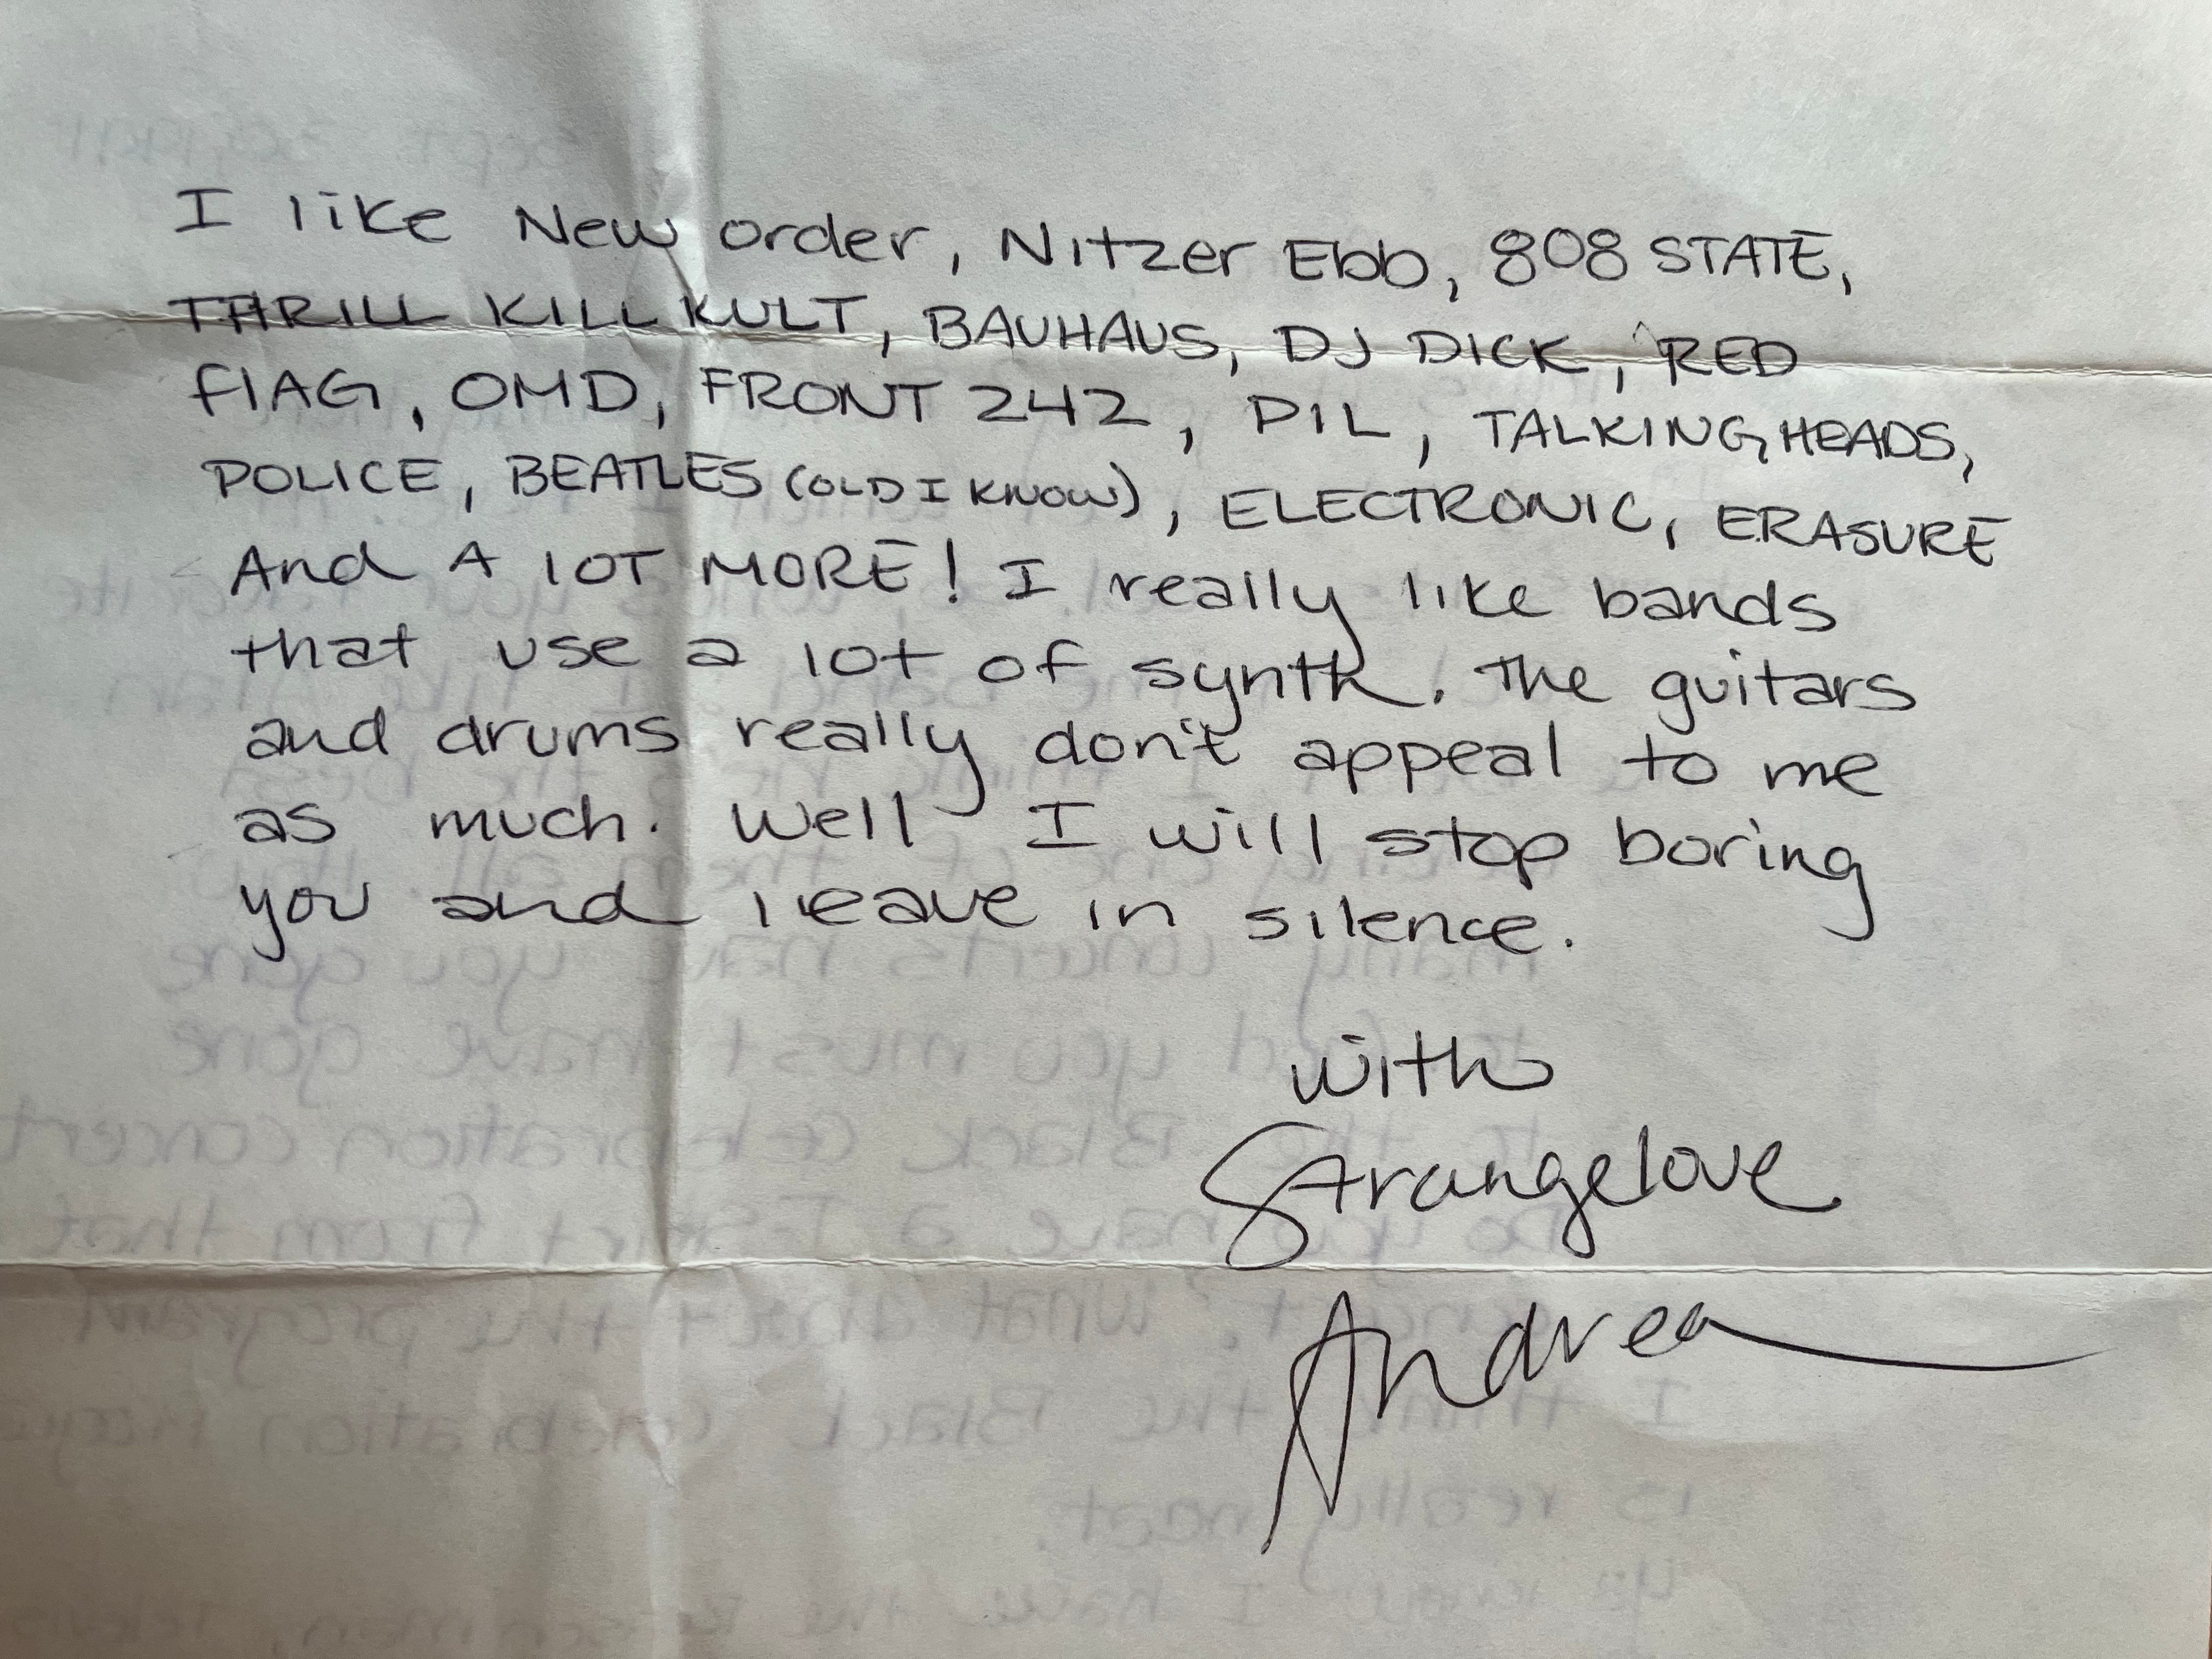 I like New order, Nitzer Ebb, 808 STATE,
THRILL KILL KULT, BAUHAUS, DJ DICK, RED
flAG, OMD, FRONT 242, PIL, TALKING HEADS,
POLICE, BEATLES (OLD I KNOW), ELECTRONIC, ERASURE
And A lOT MORE! I really like bands
that use a lot of synth. The guitars
and drums really don't appeal to me
as much. Well I will stop boring
you and leave in silence.
with
Strangelove
Andrea